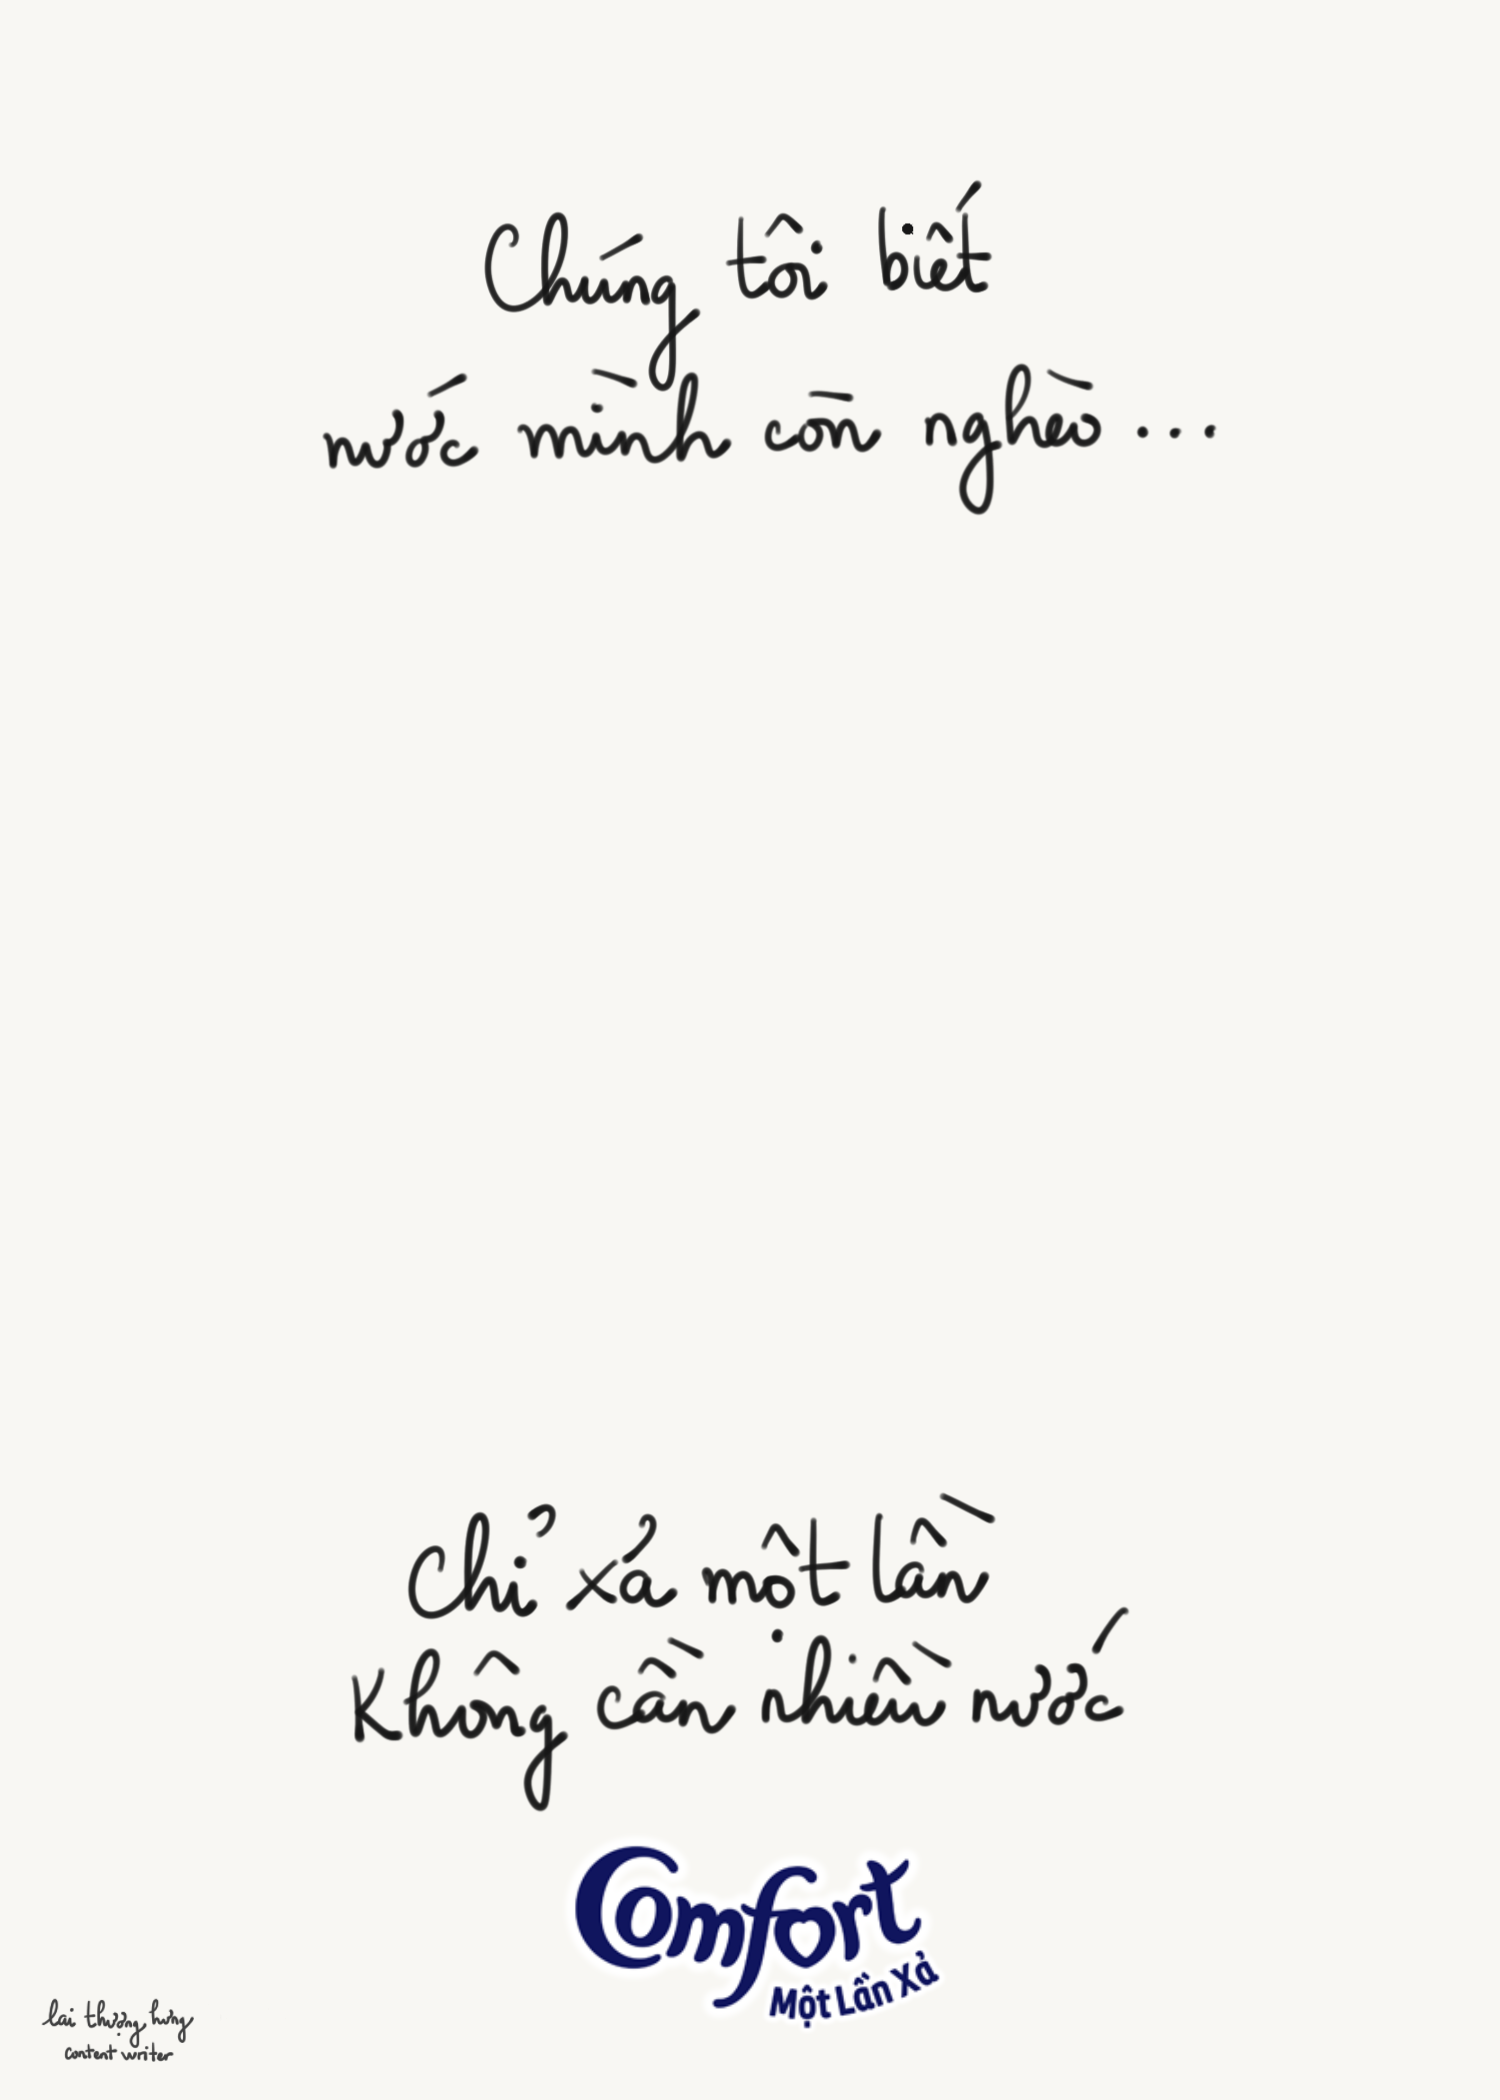 Chúng tôi biết
nước mình còn nghèo...
Chỉ xả một lần
Không cần nhiều nước
Comfort
Một Lần Xả
lai thượng hưng
content writer